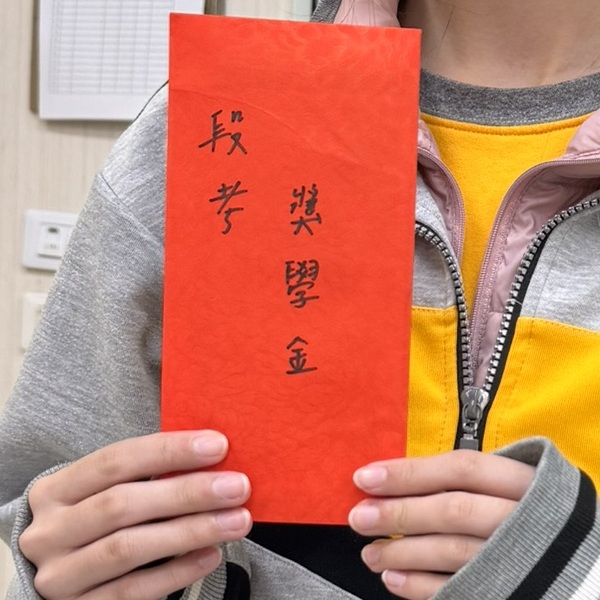 段考
獎學金